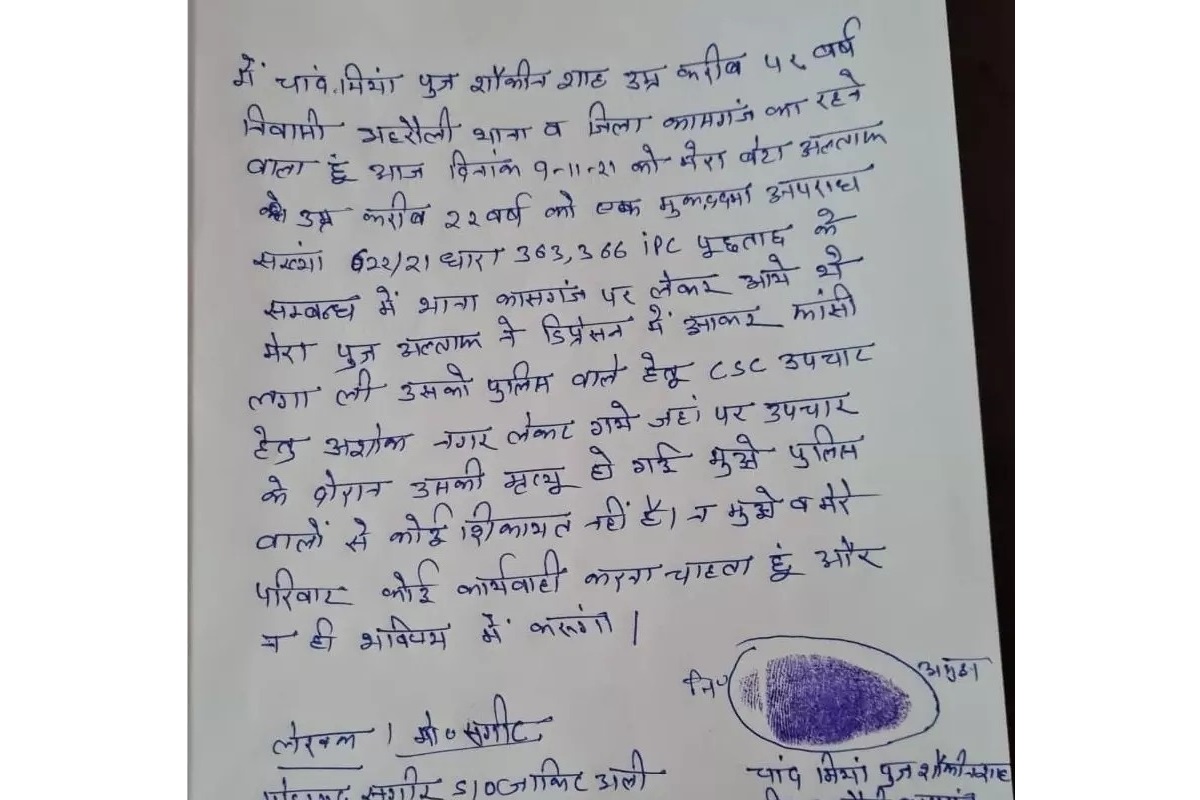 में चांद मियां पुत्र शौकीन शाह उम्र करीब ५२ वर्ष
निवासी अहरौली थाना व जिला कासगंज का रहने
वाला हूं आज दिनांक 9-11-21 को मेरा बेटा अल्ताफ
उम्र करीब २२ वर्ष को एक मुकद्दमा अपराध
संख्यां 622/21 धारा 363, 366 iPC पूछताछ के
सम्बन्ध में थाना कासगंज पर लेकर आये थे
मेरा पुत्र अल्ताफ ने डिप्रेसन में आकर फांसी
लगा ली उसको पुलिस वाले हेतू CSC उपचार
हेतु अशोक नगर लेकर गये जहां पर उपचार
के दौरान उसकी मृत्यू हो गई मुझे पुलिस
वालों से कोई शिकायत नहीं है। न मुझे व मेरे
परिवार कोई कार्यवाही करना चाहता हूं और
न ही भविष्य में करूंगा।
नि० अगूठा
लेखक / मो० सगीर
सगीर S/O जाकिर अली
चांद मियां पुत्र शौकीन शाह